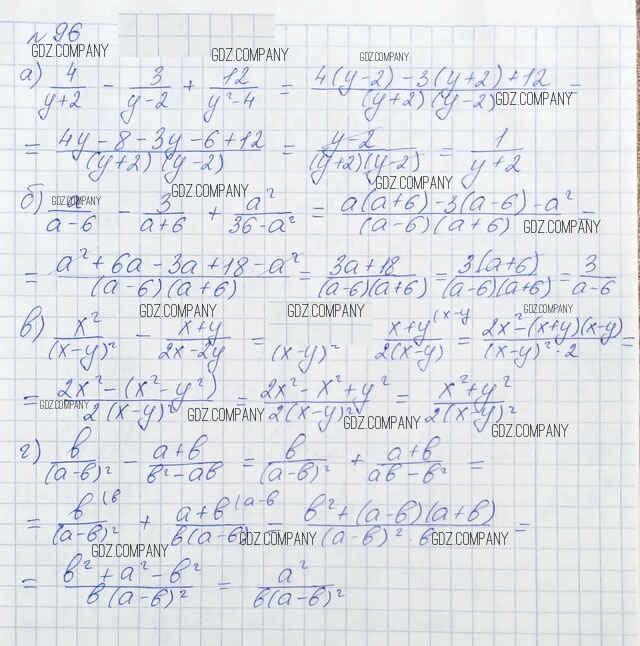 №96
GDZ.COMPANY GDZ.COMPANY GDZ.COMPANY
а) 4/(y+2) - 3/(y-2) + 12/(y²-4) = (4(y-2)-3(y+2)+12)/((y+2)(y-2)) =
GDZ.COMPANY
= (4y-8-3y-6+12)/((y+2)(y-2)) = (y-2)/((y+2)(y-2)) = 1/(y+2)
GDZ.COMPANY GDZ.COMPANY
б) a/(a-6) - 3/(a+6) + a²/(36-a²) = (a(a+6)-3(a-6)-a²)/((a-6)(a+6)) =
GDZ.COMPANY GDZ.COMPANY
= (a²+6a-3a+18-a²)/((a-6)(a+6)) = (3a+18)/((a-6)(a+6)) = (3(a+6))/((a-6)(a+6)) = 3/(a-6)
GDZ.COMPANY GDZ.COMPANY GDZ.COMPANY
в) x²/(x-y)² - (x+y)/(2x-2y) = (x-y)² (x+y)/(2(x-y)) (x-y = (2x²-(x+y)(x-y))/((x-y)²·2) =
= (2x²-(x²-y²))/(2(x-y)²) = (2x²-x²+y²)/(2(x-y)²) = (x²+y²)/(2(x-y)²)
GDZ.COMPANY GDZ.COMPANY GDZ.COMPANY GDZ.COMPANY
г) в/(a-в)² - (a+в)/(в²-aв) = в/(a-в)² + (a+в)/(aв-в²) =
= в/(a-в)² (в + (a+в)/(в(a-в)) (a-в = (в²+(a-в)(a+в))/((a-в)²·в) =
GDZ.COMPANY GDZ.COMPANY GDZ.COMPANY
= (в²+a²-в²)/(в(a-в)²) = a²/(в(a-в)²)